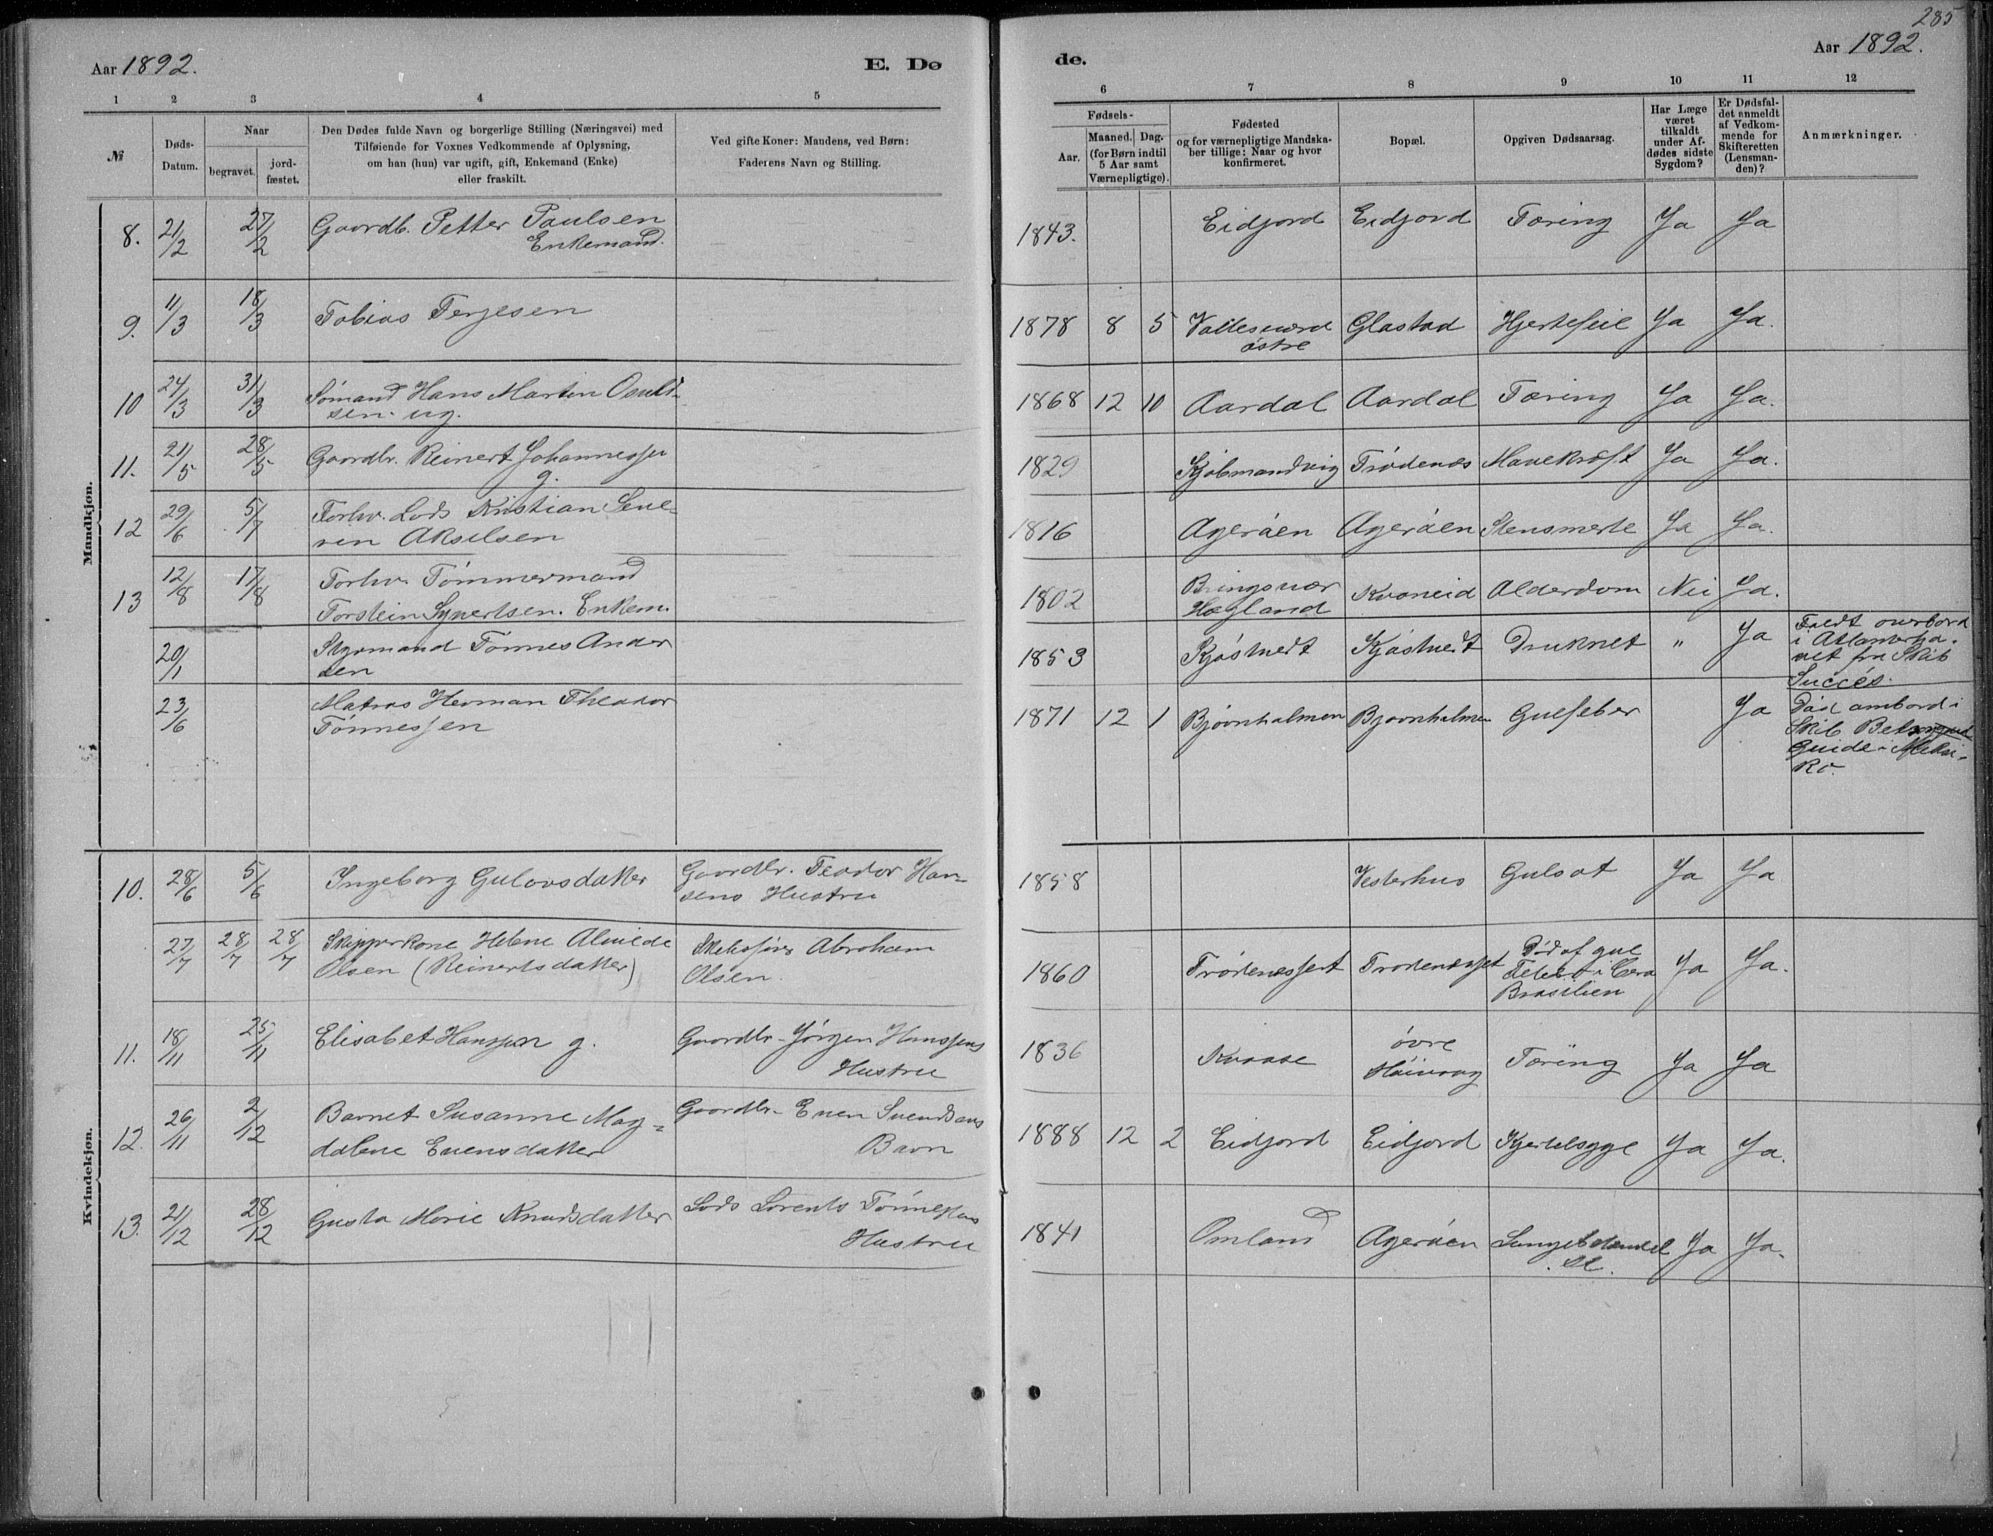 285
Aar 1892.
E. Dø
de.
Aar 1892.
1 2 3 4 5
6 7 8 9 10 11 12
№
Døds-
Datum.
Naar
begravet.
jord-
fæstet.
Den Dødes fulde Navn og borgerlige Stilling (Næringsvei) med
Tilføiende for Voxnes Vedkommende af Oplysning,
om han (hun) var ugift, gift, Enkemand (Enke)
eller fraskilt.
Ved gifte Koner: Mandens, ved Børn:
Faderens Navn og Stilling.
Fødsels-
Aar.
Maaned. Dag.
(for Børn indtil
5 Aar samt
Værnepligtige).
Fødested
og for værnepligtige Mandska-
ber tillige: Naar og hvor
konfirmeret.
Bopæl.
Opgiven Dødsaarsag.
Har Læge
været
tilkaldt
under Af-
dødes sidste
Sygdom?
Er Dødsfal-
det anmeldt
af Vedkom-
mende for
Skifteretten
(Lensman-
den)?
Anmærkninger.
Mandkjøn.
8. 21/2 27/2 Gaardb. Petter Paulsen
Enkemand.
1843. Eidjord Eidjord Tæring Ja Ja
9. 11/3 18/3 Tobias Terjesen
1878 8 5 Vallesværd
østre
Glastad Hjertefeil Ja Ja.
10 24/3 31/3 Sømand Hans Martin Osuld-
sen. ug.
1868 12 10 Aardal Aardal Tæring Ja Ja.
11. 21/5 28/5 Gaardbr. Reinert Johannessen
g.
1829 Kjøbmandvig Trødenæs Mavekræft Ja Ja.
12 29/6 5/7 Forhv. Lods Kristian Seve-
rin Akselsen
1816 Agerøen Agerøen Stensmerte Ja Ja.
13 12/8 17/8 Forhv. Tømmermand
Torstein Syvertsen. Enkem.
1802 Bringsvær
Hægland
Kvaneid Alderdom Nei Ja.
20/1 Styrmand Tønnes Ander
sen
1853 Kjøstvedt Kjøstvedt Druknet " Ja
Faldt overbord
i Atlanterha-
vet fra Skib
Succés.
23/6 Matros Herman Theodor
Tønnessen
1871 12 1 Bjørnholmen Bjørnholmen Gulfeber Ja
Død ombord i
Skib
Guide i Meksi-
ko.
Kvindekjøn.
10. 28/6 5/6 Ingeborg Gulovsdatter
Gaardbr. Teodor Han-
sens Hustru
1858 Vesterhus Gulsot Ja Ja
27/7 28/7 28/7 Skipperkone Helene Alvilde
Olsen (Reinertsdatter)
Skibsfører Abraham
Olsen.
1860 Trødenæsset Trødenæsset
Død af gul
Feber i Cera
Brasilien
Ja Ja.
11. 18/11 25/11 Elisabet Hanssen g.
Gaardbr. Jørgen Hanssens
Hustru
1836 Kvaase øvre
Tæring Ja Ja
12. 26/11 2/12 Barnet Susanne Mag-
dalene Evensdatter
Gaardbr. Even Svendsens
Barn
1888 12 2 Eidjord Eidjord Kjertelsyge Ja Ja.
13. 21/12 28/12 Gusta Marie Knudsdatter
Lods Lorents Tønnesens
Hustru
1841 Omland Agerøen Ja Ja.